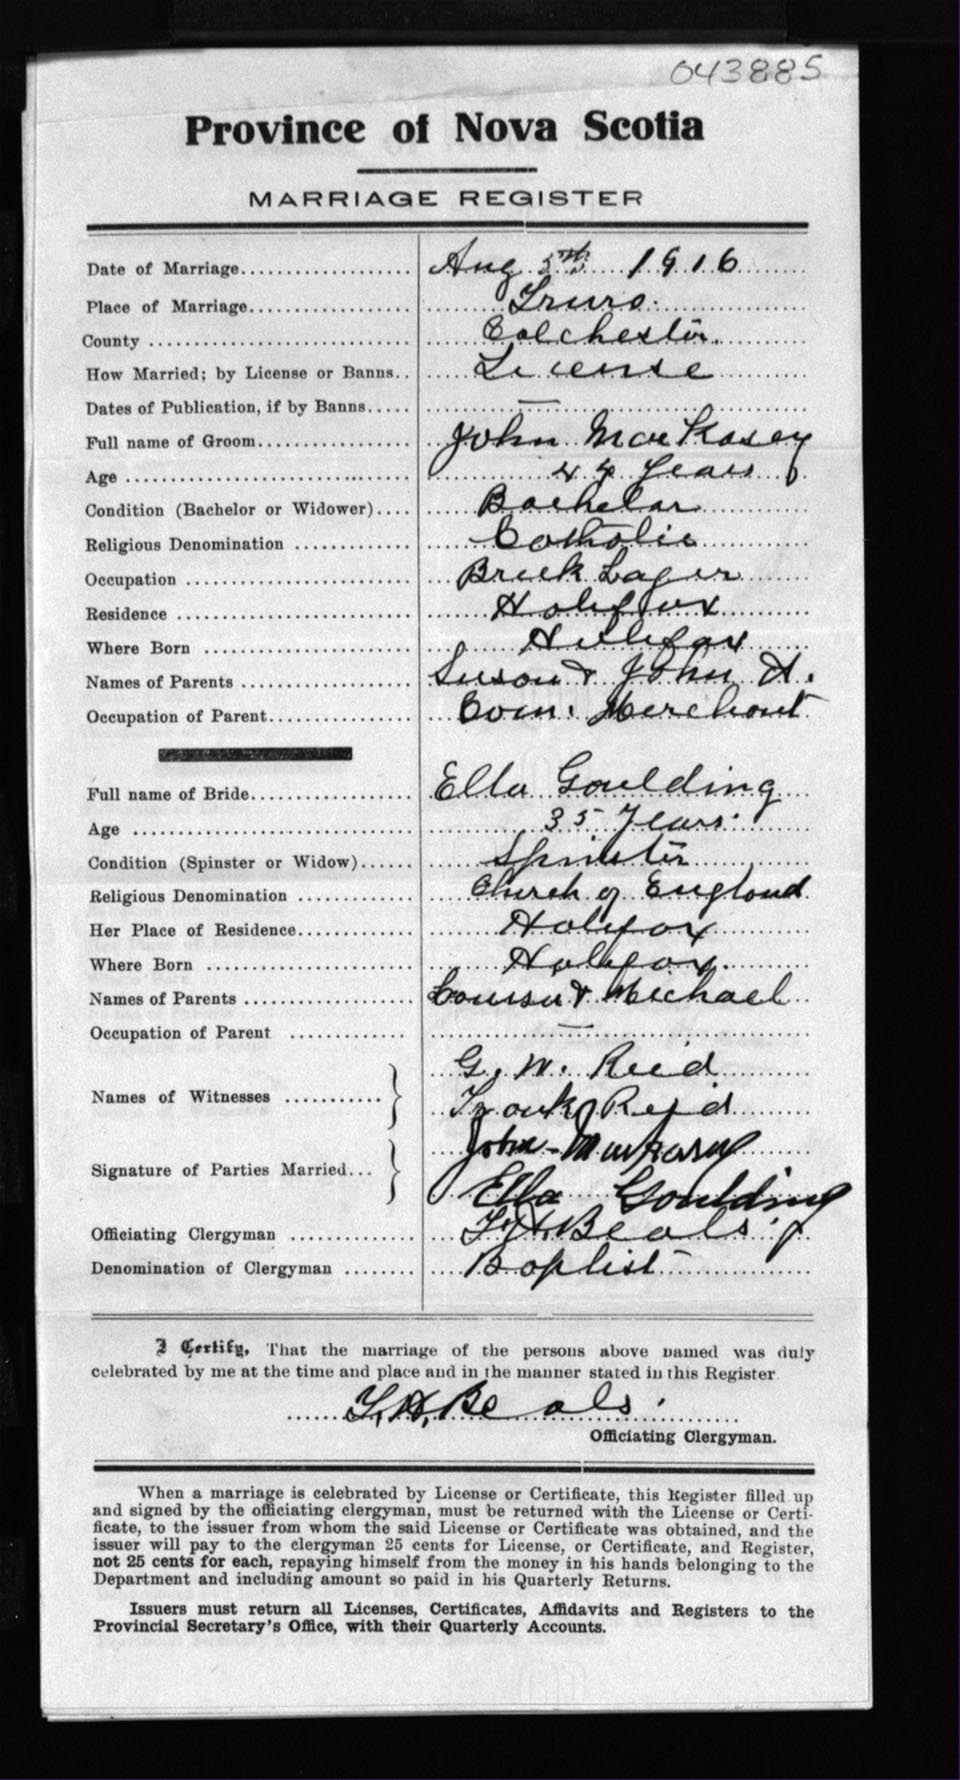 043885
Province of Nova Scotia
MARRIAGE REGISTER
Date of Marriage................... Aug 5th 1916
Place of Marriage.................. Truro.
County ............................... Colchester.
How Married; by License or Banns.. License
Dates of Publication, if by Banns..... —
Full name of Groom................. John MacKasey
Age ................................. 44 Years
Condition (Bachelor or Widower).... Bachelor
Religious Denomination ............. Catholic
Occupation .......................... Brick Layer
Residence ........................... Halifax
Where Born ........................ Halifax
Names of Parents ................... Susan & John A.
Occupation of Parent................ Com. Merchant
Full name of Bride.................. Ella Goulding
Age ................................. 35 Years.
Condition (Spinster or Widow)...... Spinster
Religious Denomination ............. Church of England
Her Place of Residence............. Halifax
Where Born ........................ Halifax.
Names of Parents ................... Louisa & Michael
Occupation of Parent ............. —
Names of Witnesses ........... G. W. Reid
Frank Reid
Signature of Parties Married... John MacKasey
Ella Goulding
Officiating Clergyman .............. Beals
Denomination of Clergyman ........ Baptist
I Certify, That the marriage of the persons above named was duly
celebrated by me at the time and place and in the manner stated in this Register
H. Beals.
Officiating Clergyman.
When a marriage is celebrated by License or Certificate, this Register filled up
and signed by the officiating clergyman, must be returned with the License or Certi-
ficate, to the issuer from whom the said License or Certificate was obtained, and the
issuer will pay to the clergyman 25 cents for License, or Certificate, and Register,
not 25 cents for each, repaying himself from the money in his hands belonging to the
Department and including amount so paid in his Quarterly Returns.
Issuers must return all Licenses, Certificates, Affidavits and Registers to the
Provincial Secretary's Office, with their Quarterly Accounts.